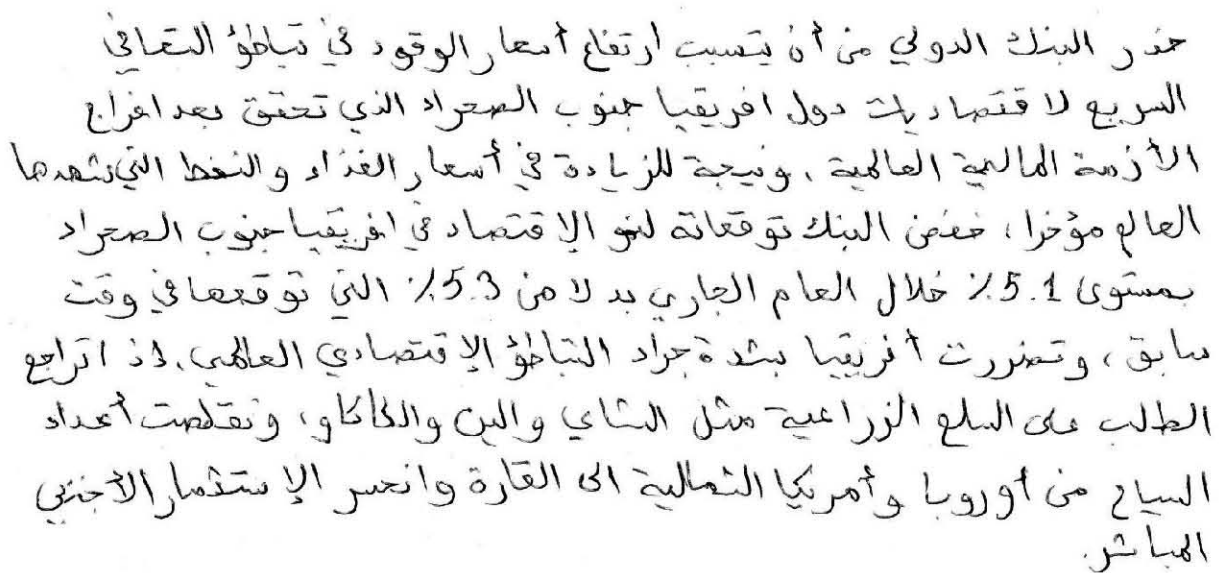 حذر البنك الدولي من أن يتسبب ارتفاع أسعار الوقود في تباطؤ التعافي
السريع لاقتصاديات دول افريقيا جنوب الصحراء الذي تحقق بعد افراج
الأزمة المالية العالمية . ونتيجة للزيادة في أسعار الغذاء والنفط التي شهدها
العالم مؤخرا ، خفض البنك توقعاته لنمو الإقتصاد في افريقيا جنوب الصحراء
بمستوى 5.1٪ خلال العام الجاري بدلا من 5.3٪ التي توقعها في وقت
سابق ، وتضررت أفريقيا بشدة جراء التباطؤ الإقتصادي العالمي ، اذ اتراجع
الطلب على السلع الزراعية مثل الشاي والبن والكاكاو ، وتقلصت أعداد
السياح من أوروبا وأمريكا الشمالية الى القارة وانحسر الإستثمار الأجنبي
المباشر .